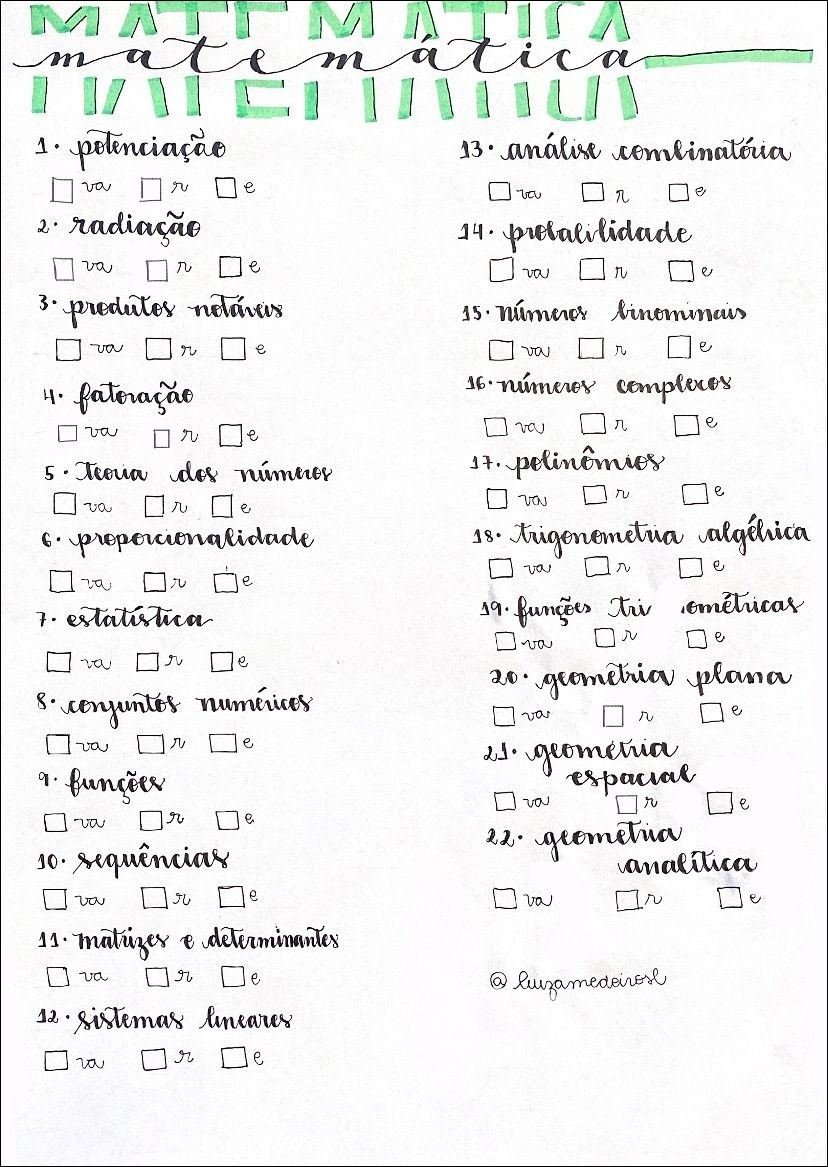 MATEMÁTICA
matemática
1. potenciação
va r e
2. radiação
va r e
3. produtos notáveis
va r e
4. fatoração
va r e
5. teoria dos números
va r e
6. proporcionalidade
va r e
7. estatística
va r e
8. conjuntos numéricos
va r e
9. funções
va r e
10. sequências
va r e
11. matrizes e determinantes
va r e
12. sistemas lineares
va r e
13. análise combinatória
va r e
14. probabilidade
va r e
15. números binominais
va r e
16. números complexos
va r e
17. polinômios
va r e
18. trigonometria algébrica
va r e
19. funções tri ométricas
va r e
20. geometria plana
va r e
21. geometria
espacial
va r e
22. geometria
analítica
va r e
@luizamedeirosl